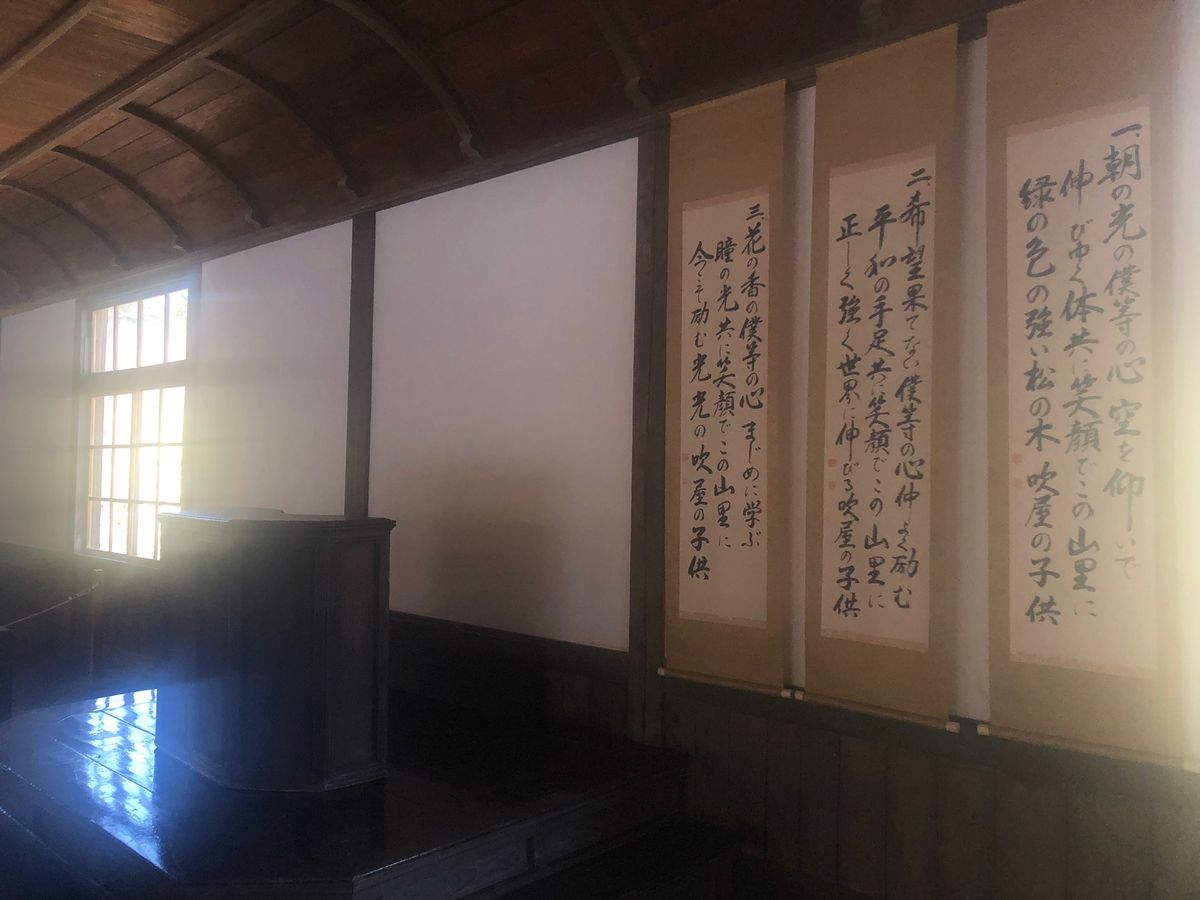 一、朝の光の僕等の心 空を仰いで
伸びゆく体共に笑顔でこの山里に
緑の色の強い松の木 吹屋の子供
二、希望果てない僕等の心仲よく励む
平和の手足共に笑顔でこの山里に
正しく強く世界に伸びる吹屋の子供
三、花の香の僕等の心 まじめに学ぶ
瞳の光共に笑顔でこの山里に
今こそ励む光 光の吹屋の子供